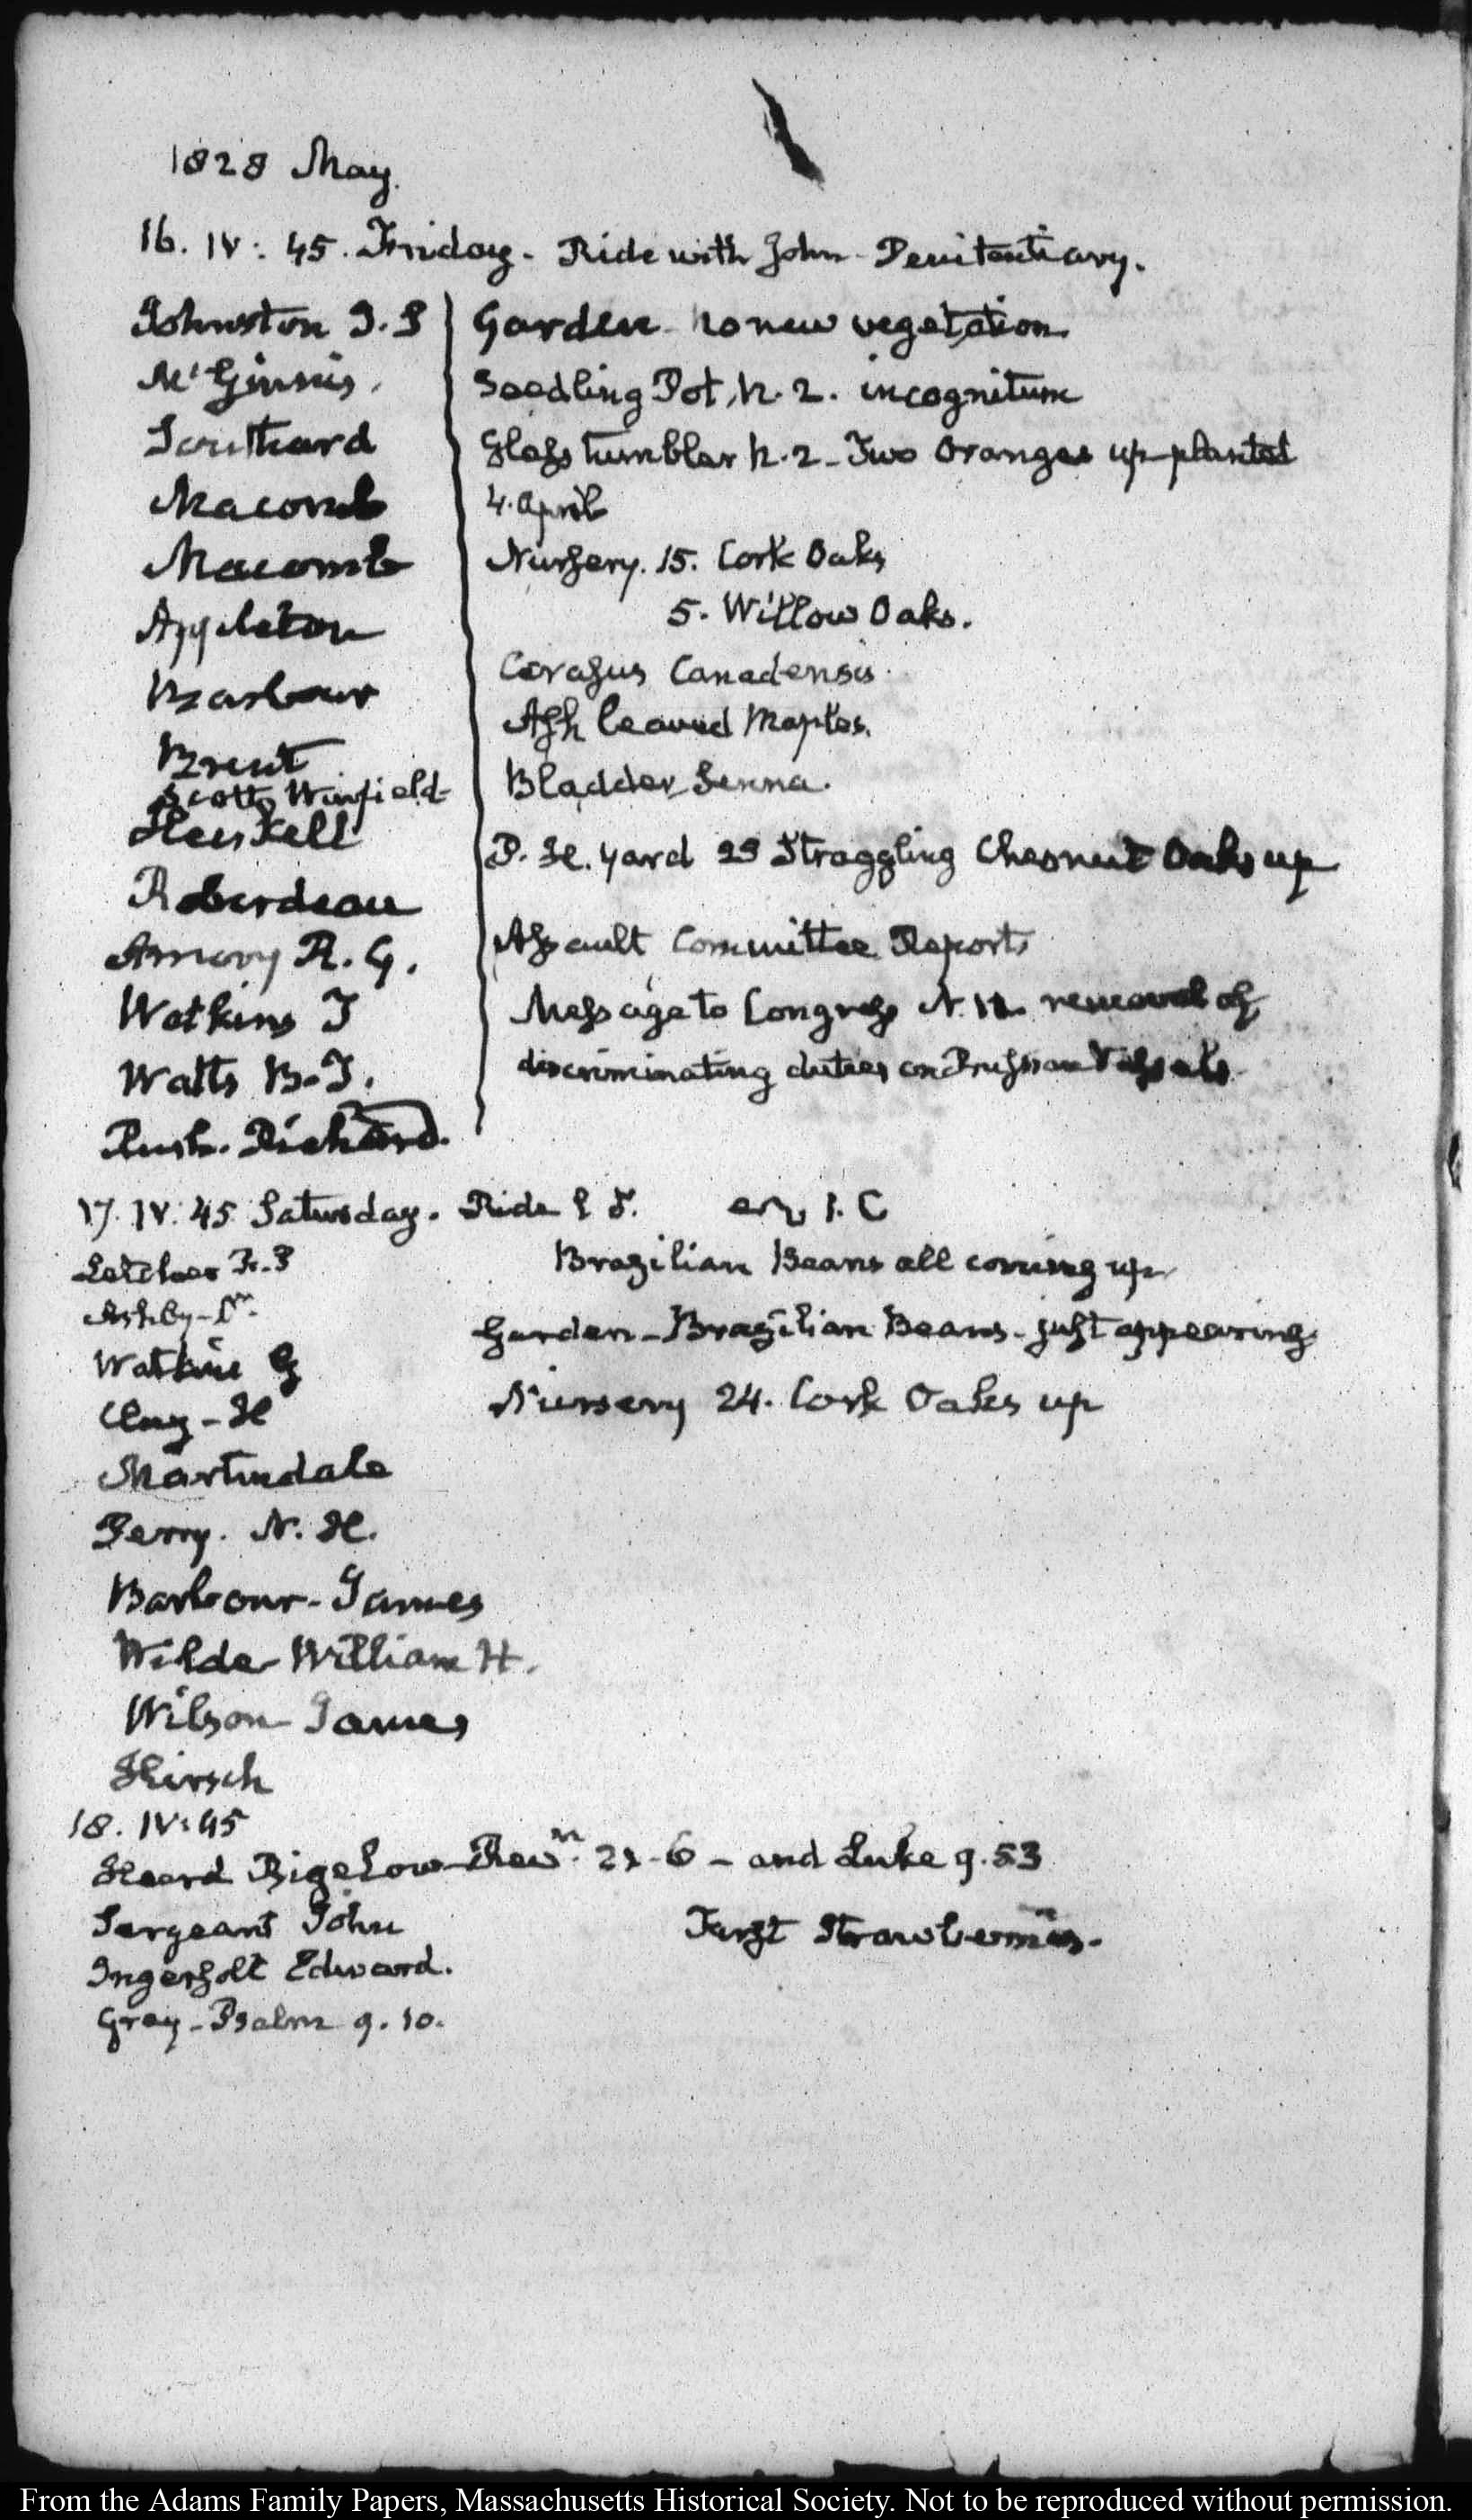 1828 May.
16. IV: 45. Friday. Ride with John - Penitentiary.
Johnston J. S
McGinnis.
Southard
Macomb
Macomb
Appleton
Barbour
Brent
Scott, Winfield
Heiskell
Roberdeau
Amory R. G.
Watkins T
Watts B. T.
Rush. Richard.
Garden no new vegetation
Seedling Pot, N. 2. incognitum
Glass tumbler N. 2 - Two Oranges up planted
4. April
Nursery. 15. Cork Oaks
5. Willow Oaks.
Cerasus Canadensis
Ash leaved Maples.
Bladder Senna.
P. H. yard 29 Straggling Chesnut Oaks up
Assault Committee Reports
Message to Congress N. 12. removal of
discriminating duties on Prussian Vessels
17. IV: 45 Saturday. Ride 1. C
Letcher R. P
Ashby - Dr.
Watkins G
Clay - H
Martindale
Perry. N. H.
Barbour - James
Wilde William H.
Wilson James
Hirsch
Brazilian Beans all coming up
Garden - Brazilian Beans - just appearing
Nursery 24. Cork Oaks up
18. IV: 45
Heard Bigelow Revn. 22 - 6 - and Luke 9. 53
Sergeant John
Ingersoll Edward.
Gray - Psalm 9. 10.
First Strawberries.
From the Adams Family Papers, Massachusetts Historical Society. Not to be reproduced without permission.